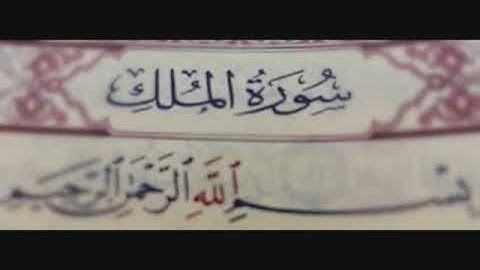 سُورَةُ المُلْكِ
بِسْمِ ٱللَّهِ ٱلرَّحْمَٰنِ ٱلرَّحِيمِ